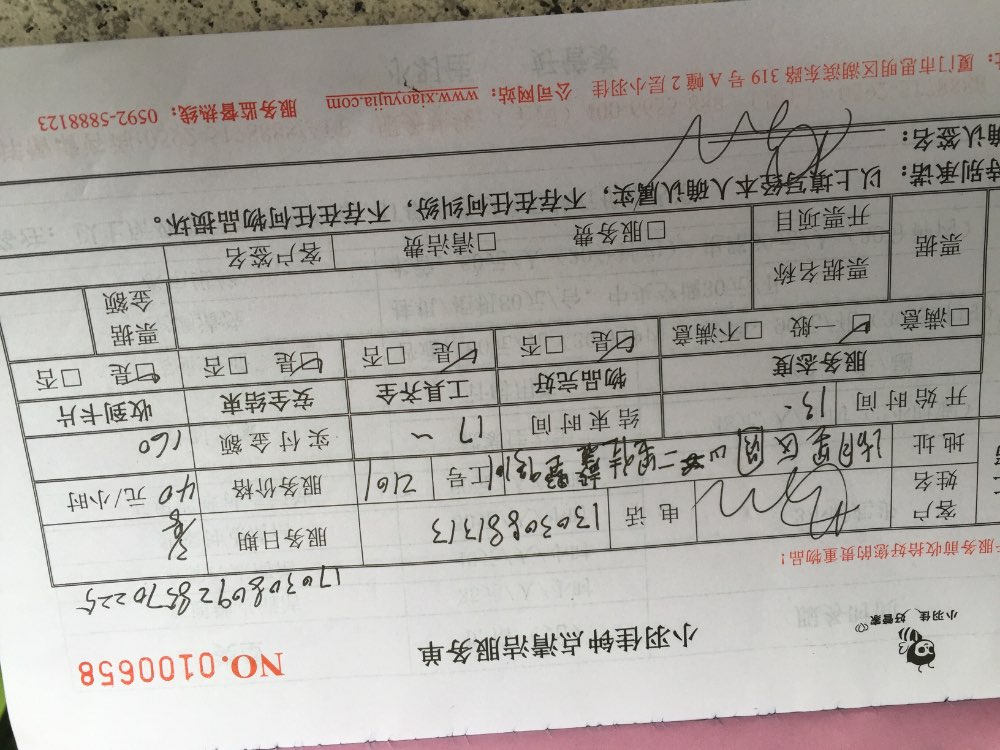 小羽佳 好管家
小羽佳钟点清洁服务单
NO.0100658
服务前收拾好您的贵重物品!
1703080928570225
客户姓名 电话 13030881313 服务日期
地址 工号 2161 服务价格 40 元/小时
开始时间 13- 结束时间 17~ 实付金额 160
服务态度 物品完好 工具齐全 安全结束 收到卡片
□满意 □一般 □不满意 □是 □否 □是 □否 □是 □否 □是 □否
票据 票据名称 票据金额
开票项目 □服务费 □清洁费 客户签名
特别承诺:以上填写经本人确认属实,不存在任何纠纷,不存在任何物品损坏。
确认签名:
址:厦门市思明区湖滨东路319号A幢2层小羽佳 公司网站:www.xiaoyujia.com 服务监督热线:0592-5888123